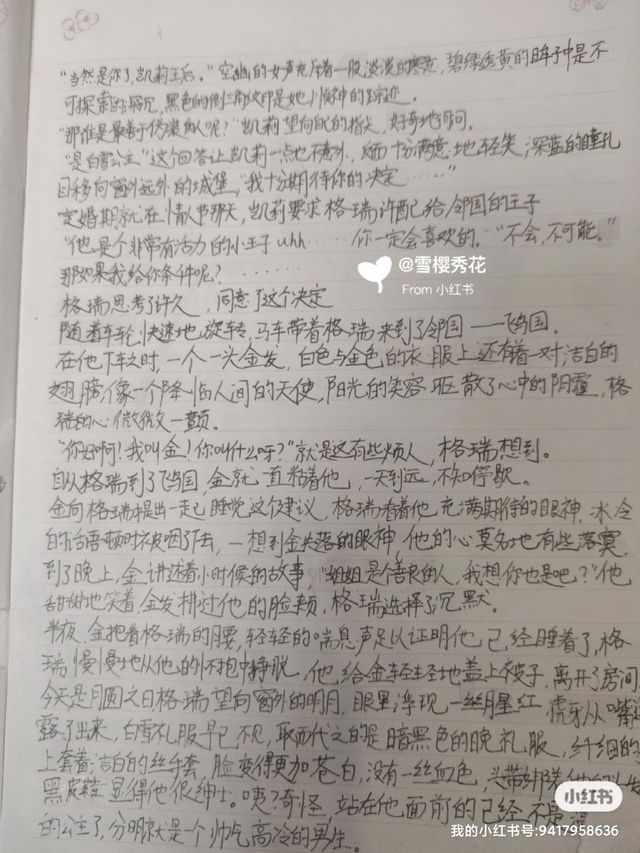 "当然是你了,凯莉王后。"空幽的女声充斥着一股淡淡的寒意,碧绿透黄的眸子中是不
可探索的深沉,黑色的倒三角纹印是她小恢神的踪迹。
"那谁是最善于伪装的人呢?"凯莉望向自己的指尖,好奇地询问。
"是白雪公主"这个回答让凯莉一点也不意外,反而十分满意地轻笑,深蓝的瞳孔
目移向窗外远处的城堡,"我十分期待你的决定……"
定婚期就在情人节那天,凯莉要求格瑞许配给邻国的王子
"他是个非常有活力的小王子uhh…… 你一定会喜欢的。""不会,不可能。"
那如果我给你条件呢?……
格瑞思考了许久,同意了这个决定
随着车轮快速地旋转,马车带着格瑞来到了邻国——飞鸟国。
在他下车之时,一个一头金发,白色与金色的衣服上还有着一对洁白的
翅膀,像一个降临人间的天使,阳光的笑容驱散了心中的阴霾,格
瑞的心微微一颤。
"你好啊!我叫金!你叫什么呀?"就是这有些烦人,格瑞想到。
自从格瑞到了飞鸟国,金就一直粘着他,一天到远,不知停歇。
金向格瑞提出一起睡觉这个建议,格瑞看着他充满期待的眼神,冰冷
的话语顿时被咽了下去,一想到金失落的眼神,他的心莫名地有些落寞
到了晚上,金讲述着小时候的故事,"姐姐是个善良的人,我想你也是吧?"他
甜甜地笑着金发拂过他的脸颊,格瑞选择了沉默。
半夜,金抱着格瑞的腰,轻轻的喘息声足以证明他已经睡着了,格
瑞慢慢地从他的怀抱中挣脱,他给金轻轻地盖上被子,离开了房间
今天是月圆之日格瑞望向窗外的明月,眼里浮现一丝腥红,虎牙从嘴
露了出来,白雪礼服早已不见,取而代之的是暗黑色的晚礼服,纤细的
上套着洁白的丝手套,脸变得更加苍白,没有一丝血色,
黑皮鞋显得他很绅士。咦?奇怪,站在他面前的已经不是
的公主了,分明就是个帅气高冷的男生。
@雪樱秀花
From 小红书
小红书
我的小红书号:9417958636